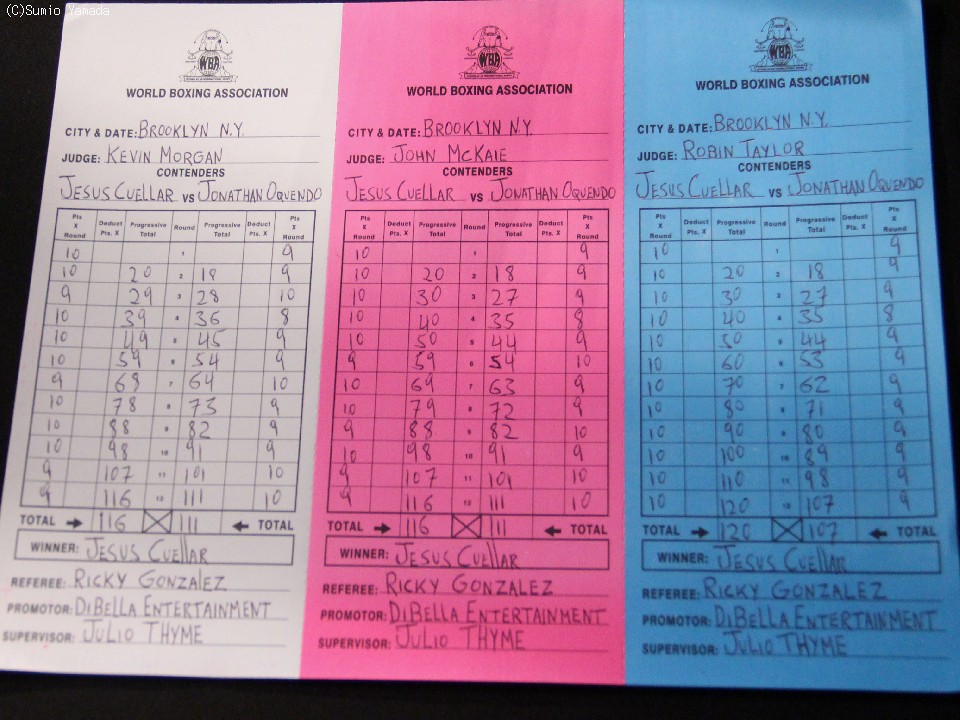 (C)Sumio Yamada
WBA
WORLD BOXING ASSOCIATION
CITY & DATE: BROOKLYN N.Y.
JUDGE: KEVIN MORGAN
CONTENDERS
JESUS CUELLAR VS JONATHAN OQUENDO
Pts X Round Deduct Pts. X Progressive Total Round Progressive Total Deduct Pts. X Pts X Round
10 1 9
10 20 2 18 9
9 29 3 28 10
10 39 4 36 8
10 49 5 45 9
10 59 6 54 9
9 68 7 64 10
10 78 8 73 9
10 88 9 82 9
10 98 10 91 9
9 107 11 101 10
9 116 12 111 10
TOTAL 116 111 TOTAL
WINNER: JESUS CUELLAR
REFEREE: RICKY GONZALEZ
PROMOTOR: DIBELLA ENTERTAINMENT
SUPERVISOR: JULIO THYME
WBA
WORLD BOXING ASSOCIATION
CITY & DATE: BROOKLYN N.Y.
JUDGE: JOHN MCKAIE
CONTENDERS
JESUS CUELLAR VS JONATHAN OQUENDO
Pts X Round Deduct Pts. X Progressive Total Round Progressive Total Deduct Pts. X Pts X Round
10 1 9
10 20 2 18 9
10 30 3 27 9
10 40 4 35 8
10 50 5 44 9
9 59 6 54 10
10 69 7 63 9
10 79 8 72 9
9 88 9 82 10
10 98 10 91 9
9 107 11 101 10
9 116 12 111 10
TOTAL 116 111 TOTAL
WINNER: JESUS CUELLAR
REFEREE: RICKY GONZALEZ
PROMOTOR: DIBELLA ENTERTAINMENT
SUPERVISOR: JULIO THYME
WBA
WORLD BOXING ASSOCIATION
CITY & DATE: BROOKLYN N.Y.
JUDGE: ROBIN TAYLOR
CONTENDERS
JESUS CUELLAR VS JONATHAN OQUENDO
Pts X Round Deduct Pts. X Progressive Total Round Progressive Total Deduct Pts. X Pts X Round
10 1 9
10 20 2 18 9
10 30 3 27 9
10 40 4 35 8
10 50 5 44 9
10 60 6 53 9
10 70 7 62 9
10 80 8 71 9
10 90 9 80 9
10 100 10 89 9
10 110 11 98 9
10 120 12 107 9
TOTAL 120 107 TOTAL
WINNER: JESUS CUELLAR
REFEREE: RICKY GONZALEZ
PROMOTOR: DIBELLA ENTERTAINMENT
SUPERVISOR: JULIO THYME